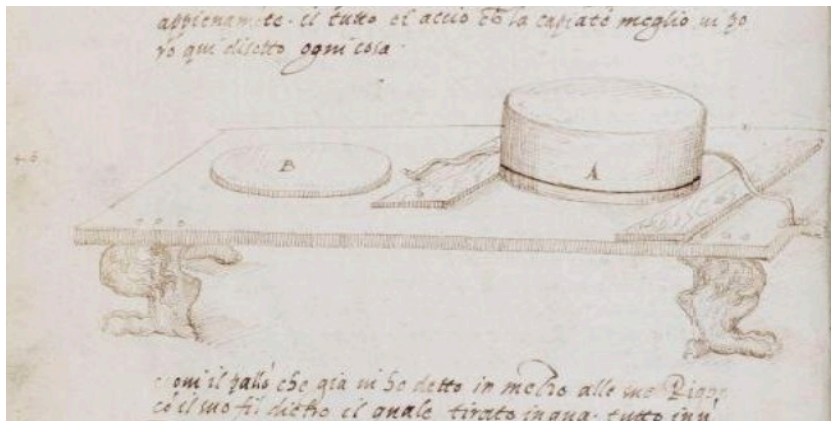 appienamẽte. il tutto et accio chõ la capiate meglio ui po
rò qui disotto ogni cosa.
B
A
il pallõ che gia ui ho detto in mezzo alle due Righe
cõ il suo fil dietro il quale tirato inqua. tutto inũ